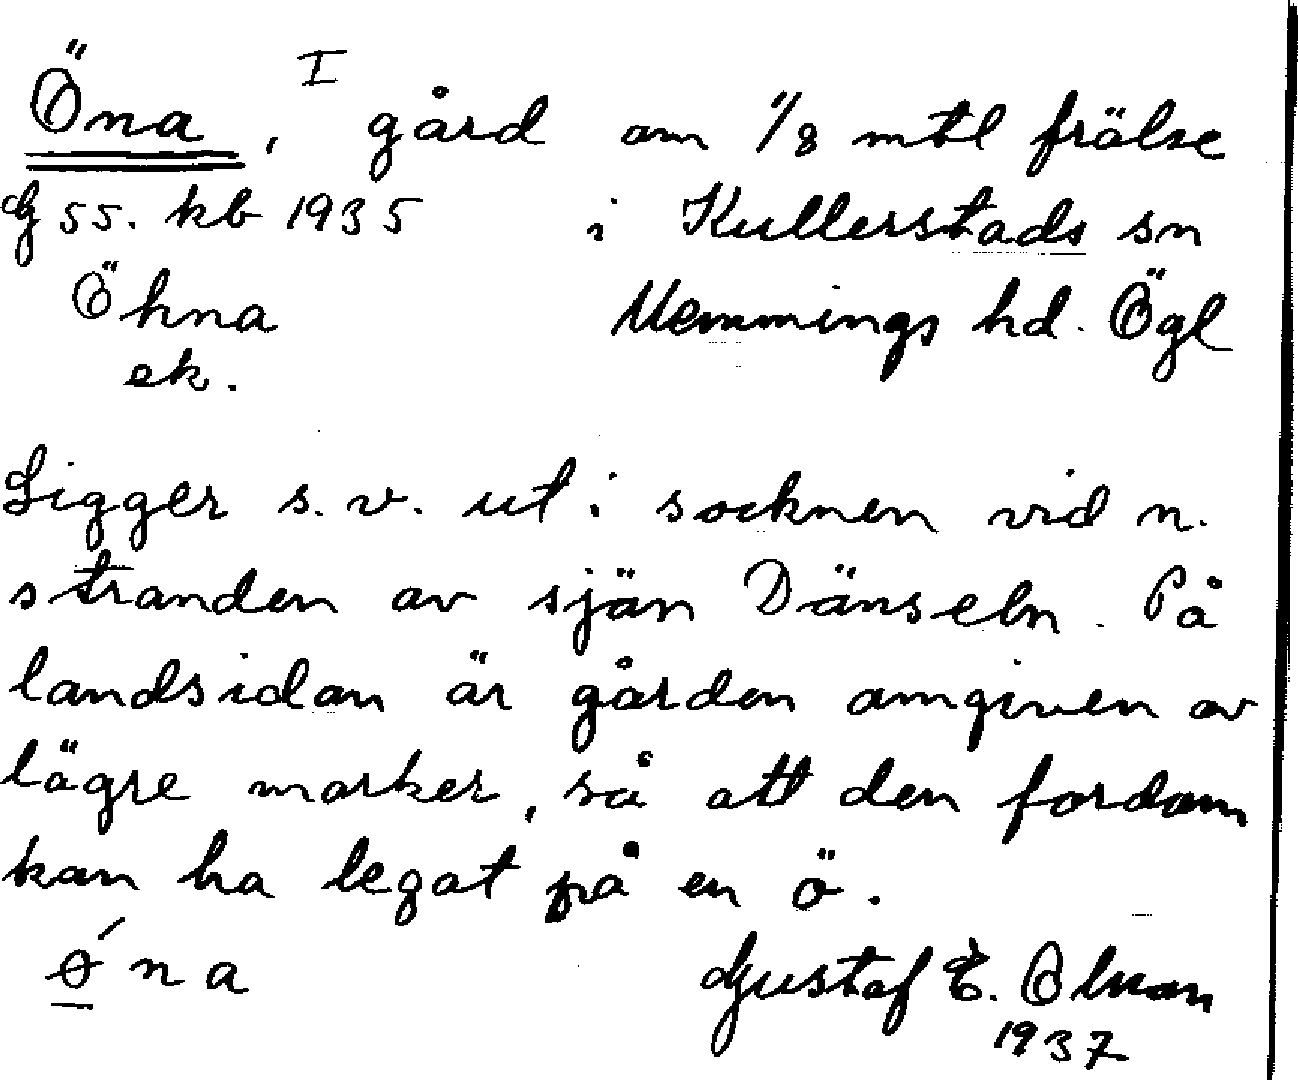 Öna, I gård om 1/8 mtl frälse
G 55. kb 1935 i Kullerstads sn
Öhna Memmings hd. Ögl
ek.
Ligger s.v. ut i socknen vid n.
stranden av sjön Dänseln. På
landsidan är gården omgiven av
lägre marker, så att den fordom
kan ha legat på en ö.
ǿna Gustaf E. Olson
1937